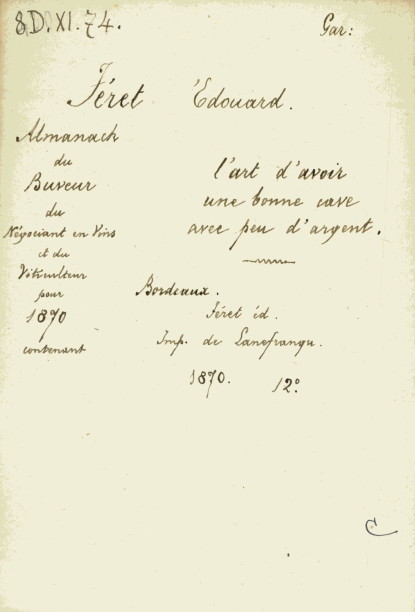 8.D.XI.74.
Gar:
Féret Édouard.
Almanach
du
Buveur
du
Négociant en Vins
et du
Viticulteur
pour
1870
contenant
l'art d'avoir
une bonne cave
avec peu d'argent.
Bordeaux.
Féret éd.
Imp. de Lanefranqu.
1870. 12º
C